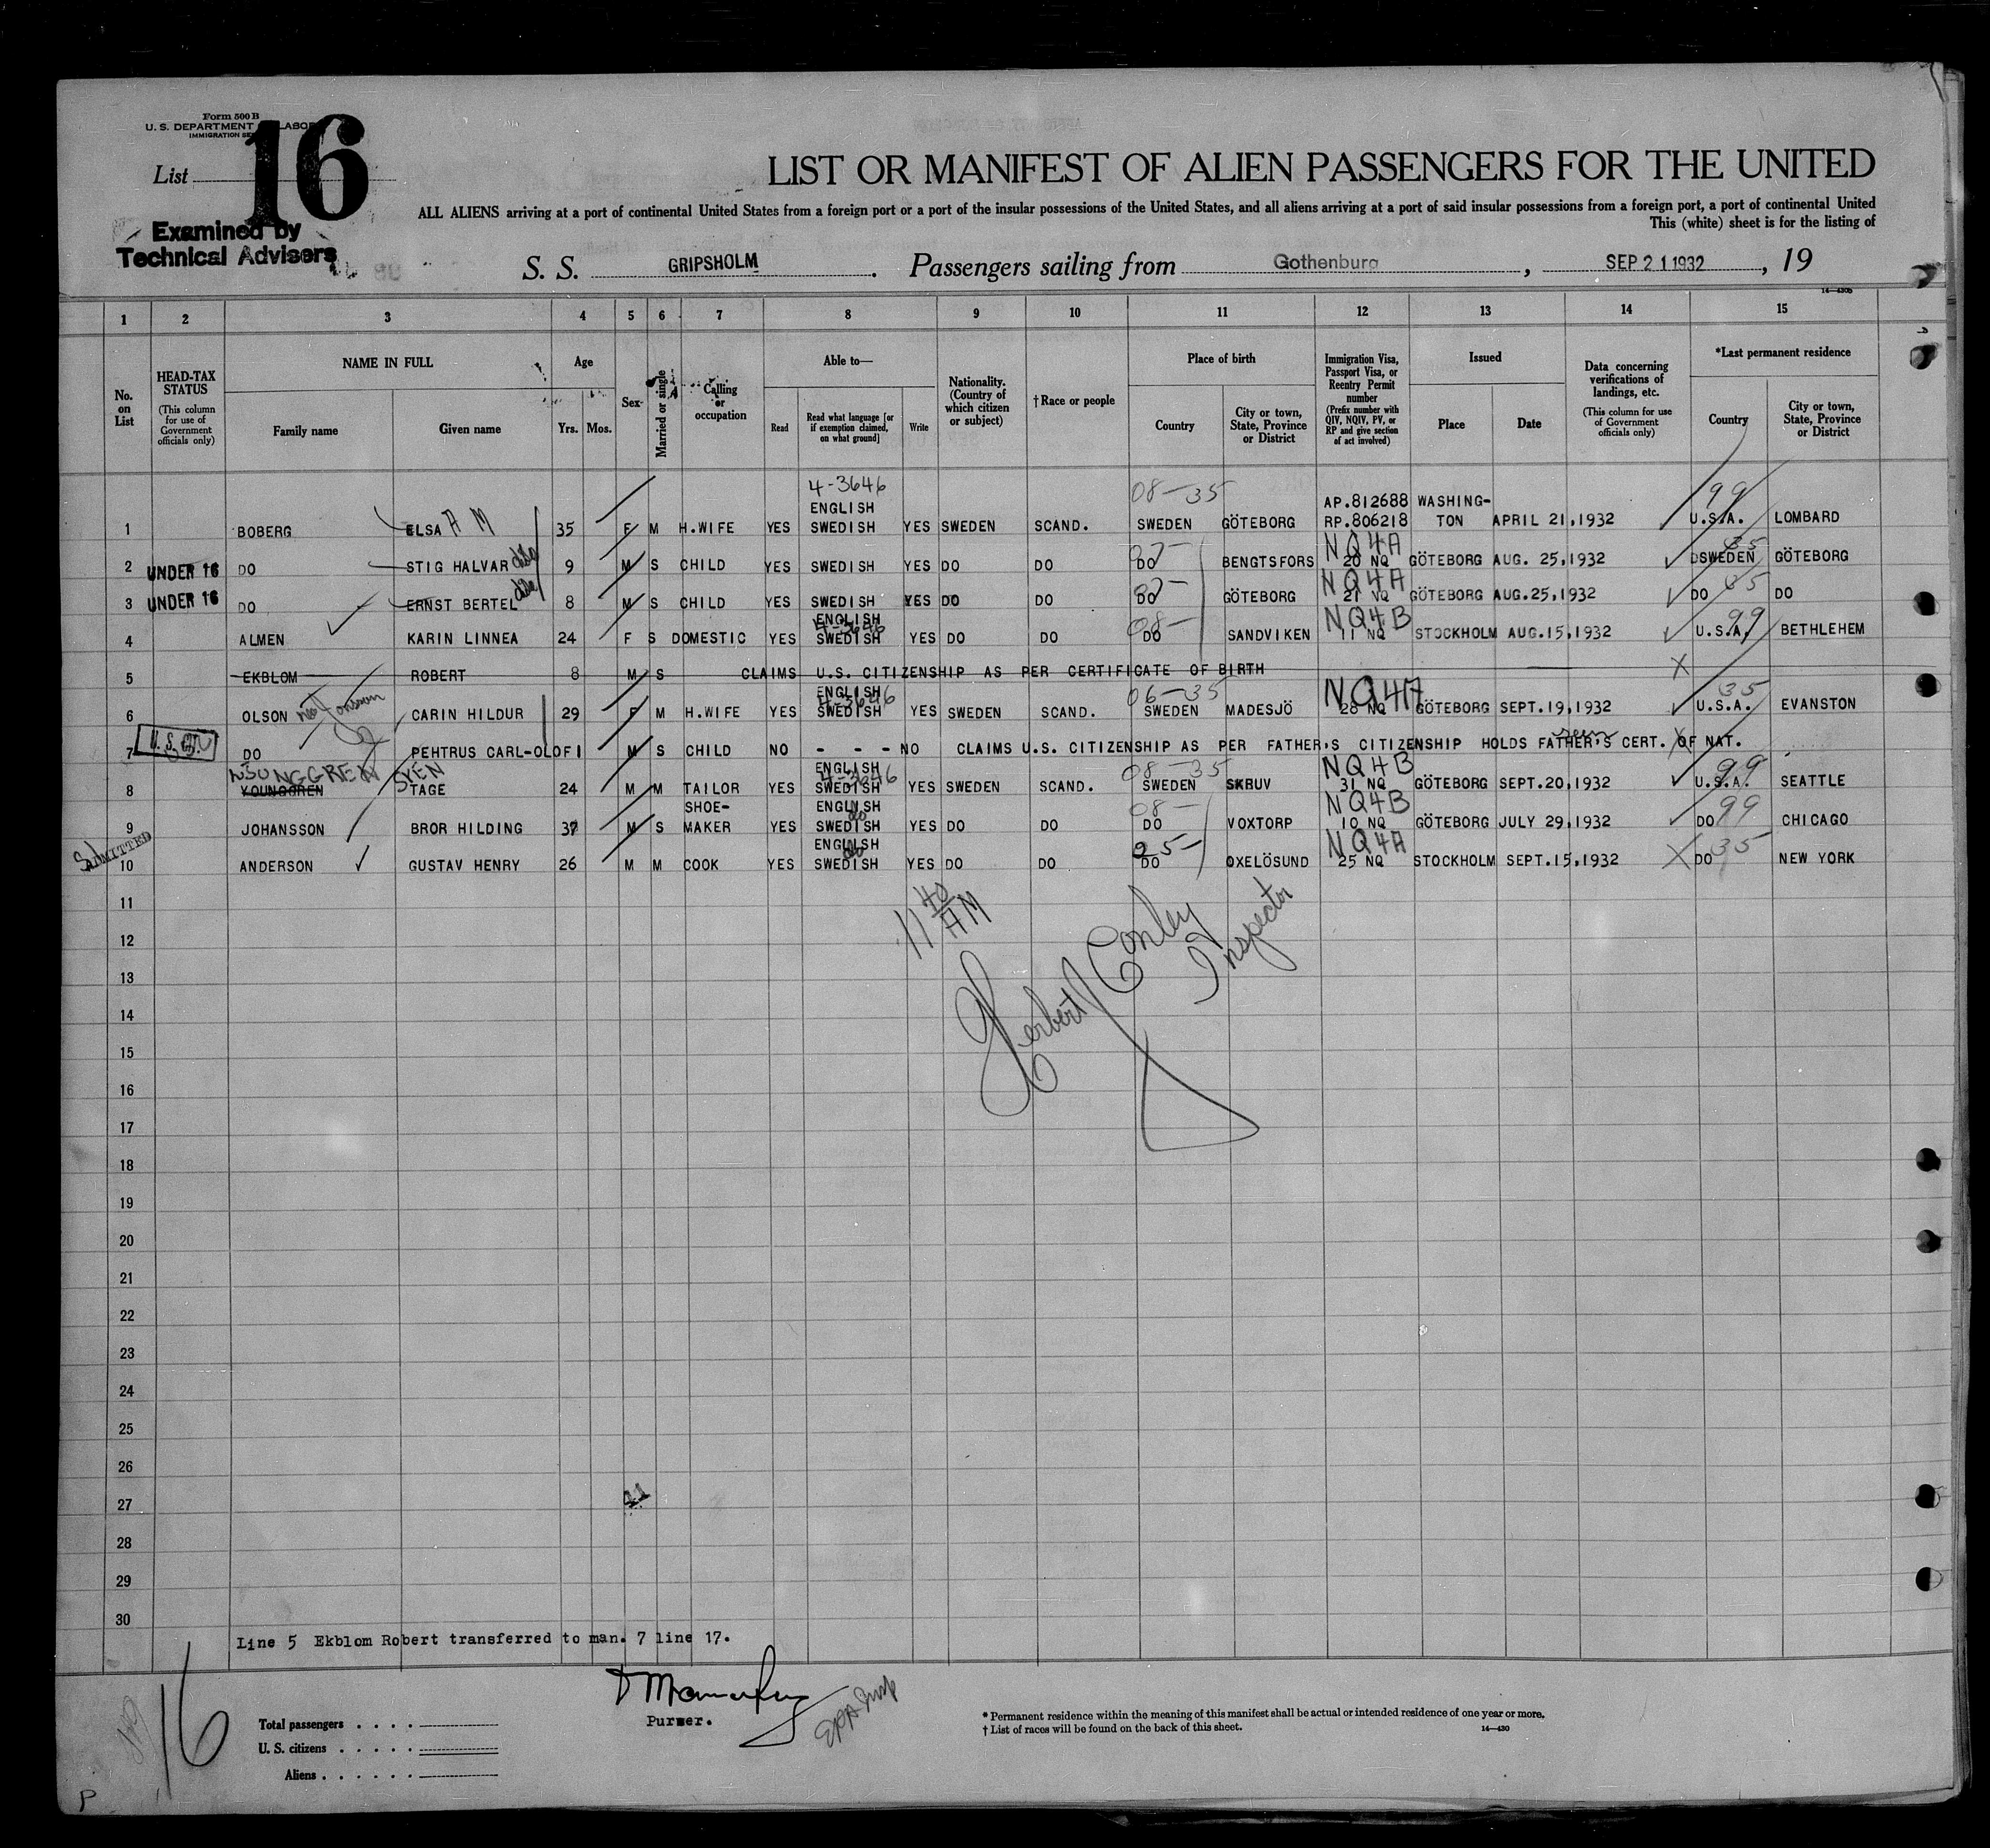 Form 500 B
U. S. DEPARTMENT LABOR
IMMIGRATION SE
List 16
Examined by
Technical Advisers
LIST OR MANIFEST OF ALIEN PASSENGERS FOR THE UNITED
ALL ALIENS arriving at a port of continental United States from a foreign port or a port of the insular possessions of the United States, and all aliens arriving at a port of said insular possessions from a foreign port, a port of continental United
This (white) sheet is for the listing of
S. S. GRIPSHOLM . Passengers sailing from Gothenburg , SEP 21 1932 , 19
14—430B
1 2 3 4 5 6 7 8 9 10 11 12 13 14 15
No. on List
HEAD-TAX STATUS (This column for use of Government officials only)
NAME IN FULL
Family name Given name
Age
Yrs. Mos.
Sex
Married or single
Calling or occupation
Able to—
Read Read what language [or if exemption claimed, on what ground] Write
Nationality. (Country of which citizen or subject)
† Race or people
Place of birth
Country City or town, State, Province or District
Immigration Visa, Passport Visa, or Reentry Permit number (Prefix number with QIV, NQIV, PV, or RP and give section of act involved)
Issued
Place Date
Data concerning verifications of landings, etc. (This column for use of Government officials only)
*Last permanent residence
Country City or town, State, Province or District
4-3646 08-35 99
ENGLISH AP.812688 WASHING-
1 BOBERG ELSA A M 35 F M H.WIFE YES SWEDISH YES SWEDEN SCAND. SWEDEN GÖTEBORG RP.806218 TON APRIL 21,1932 U.S.A. LOMBARD
NQ4A 35
2 UNDER 16 DO STIG HALVAR 9 M S CHILD YES SWEDISH YES DO DO DO BENGTSFORS 20 NQ GÖTEBORG AUG. 25,1932 SWEDEN GÖTEBORG
NQ4A 35
3 UNDER 16 DO ERNST BERTEL 8 M S CHILD YES SWEDISH YES DO DO DO GÖTEBORG 21 NQ GÖTEBORG AUG.25,1932 DO DO
ENGLISH 4-3646 08- NQ4B 99
4 ALMEN KARIN LINNEA 24 F S DOMESTIC YES SWEDISH YES DO DO DO SANDVIKEN 11 NQ STOCKHOLM AUG.15,1932 U.S.A. BETHLEHEM
5 EKBLOM ROBERT 8 M S CLAIMS U.S. CITIZENSHIP AS PER CERTIFICATE OF BIRTH
ENGLISH 4-3646 06-35 NQ4A 35
6 OLSON CARIN HILDUR 29 F M H.WIFE YES SWEDISH YES SWEDEN SCAND. SWEDEN MADESJÖ 28 NQ GÖTEBORG SEPT.19,1932 U.S.A. EVANSTON
7 DO PEHTRUS CARL-OLOF 1 M S CHILD NO - - - NO CLAIMS U.S. CITIZENSHIP AS PER FATHER'S CITIZENSHIP HOLDS FATHER'S CERT. OF NAT.
SVEN ENGLISH 4-3646 08-35 NQ4B 99
8 YOUNGGREN TAGE 24 M M TAILOR YES SWEDISH YES SWEDEN SCAND. SWEDEN SKRUV 31 NQ GÖTEBORG SEPT.20,1932 U.S.A. SEATTLE
SHOE- ENGLISH 08- NQ4B 99
9 JOHANSSON BROR HILDING 37 M S MAKER YES SWEDISH YES DO DO DO VOXTORP 10 NQ GÖTEBORG JULY 29,1932 DO CHICAGO
ADMITTED ENGLISH 25- NQ4A 35
10 ANDERSON GUSTAV HENRY 26 M M COOK YES SWEDISH YES DO DO DO OXELÖSUND 25 NQ STOCKHOLM SEPT.15,1932 DO NEW YORK
11
11 40 AM
12
Herbert Conley Inspector
13
14
15
16
17
18
19
20
21
22
23
24
25
26
27
28
29
30
Line 5 Ekblom Robert transferred to man. 7 line 17.
16
Purser.
Total passengers . . . .
U. S. citizens . . . . .
Aliens . . . . . .
* Permanent residence within the meaning of this manifest shall be actual or intended residence of one year or more.
† List of races will be found on the back of this sheet.
14—430
P